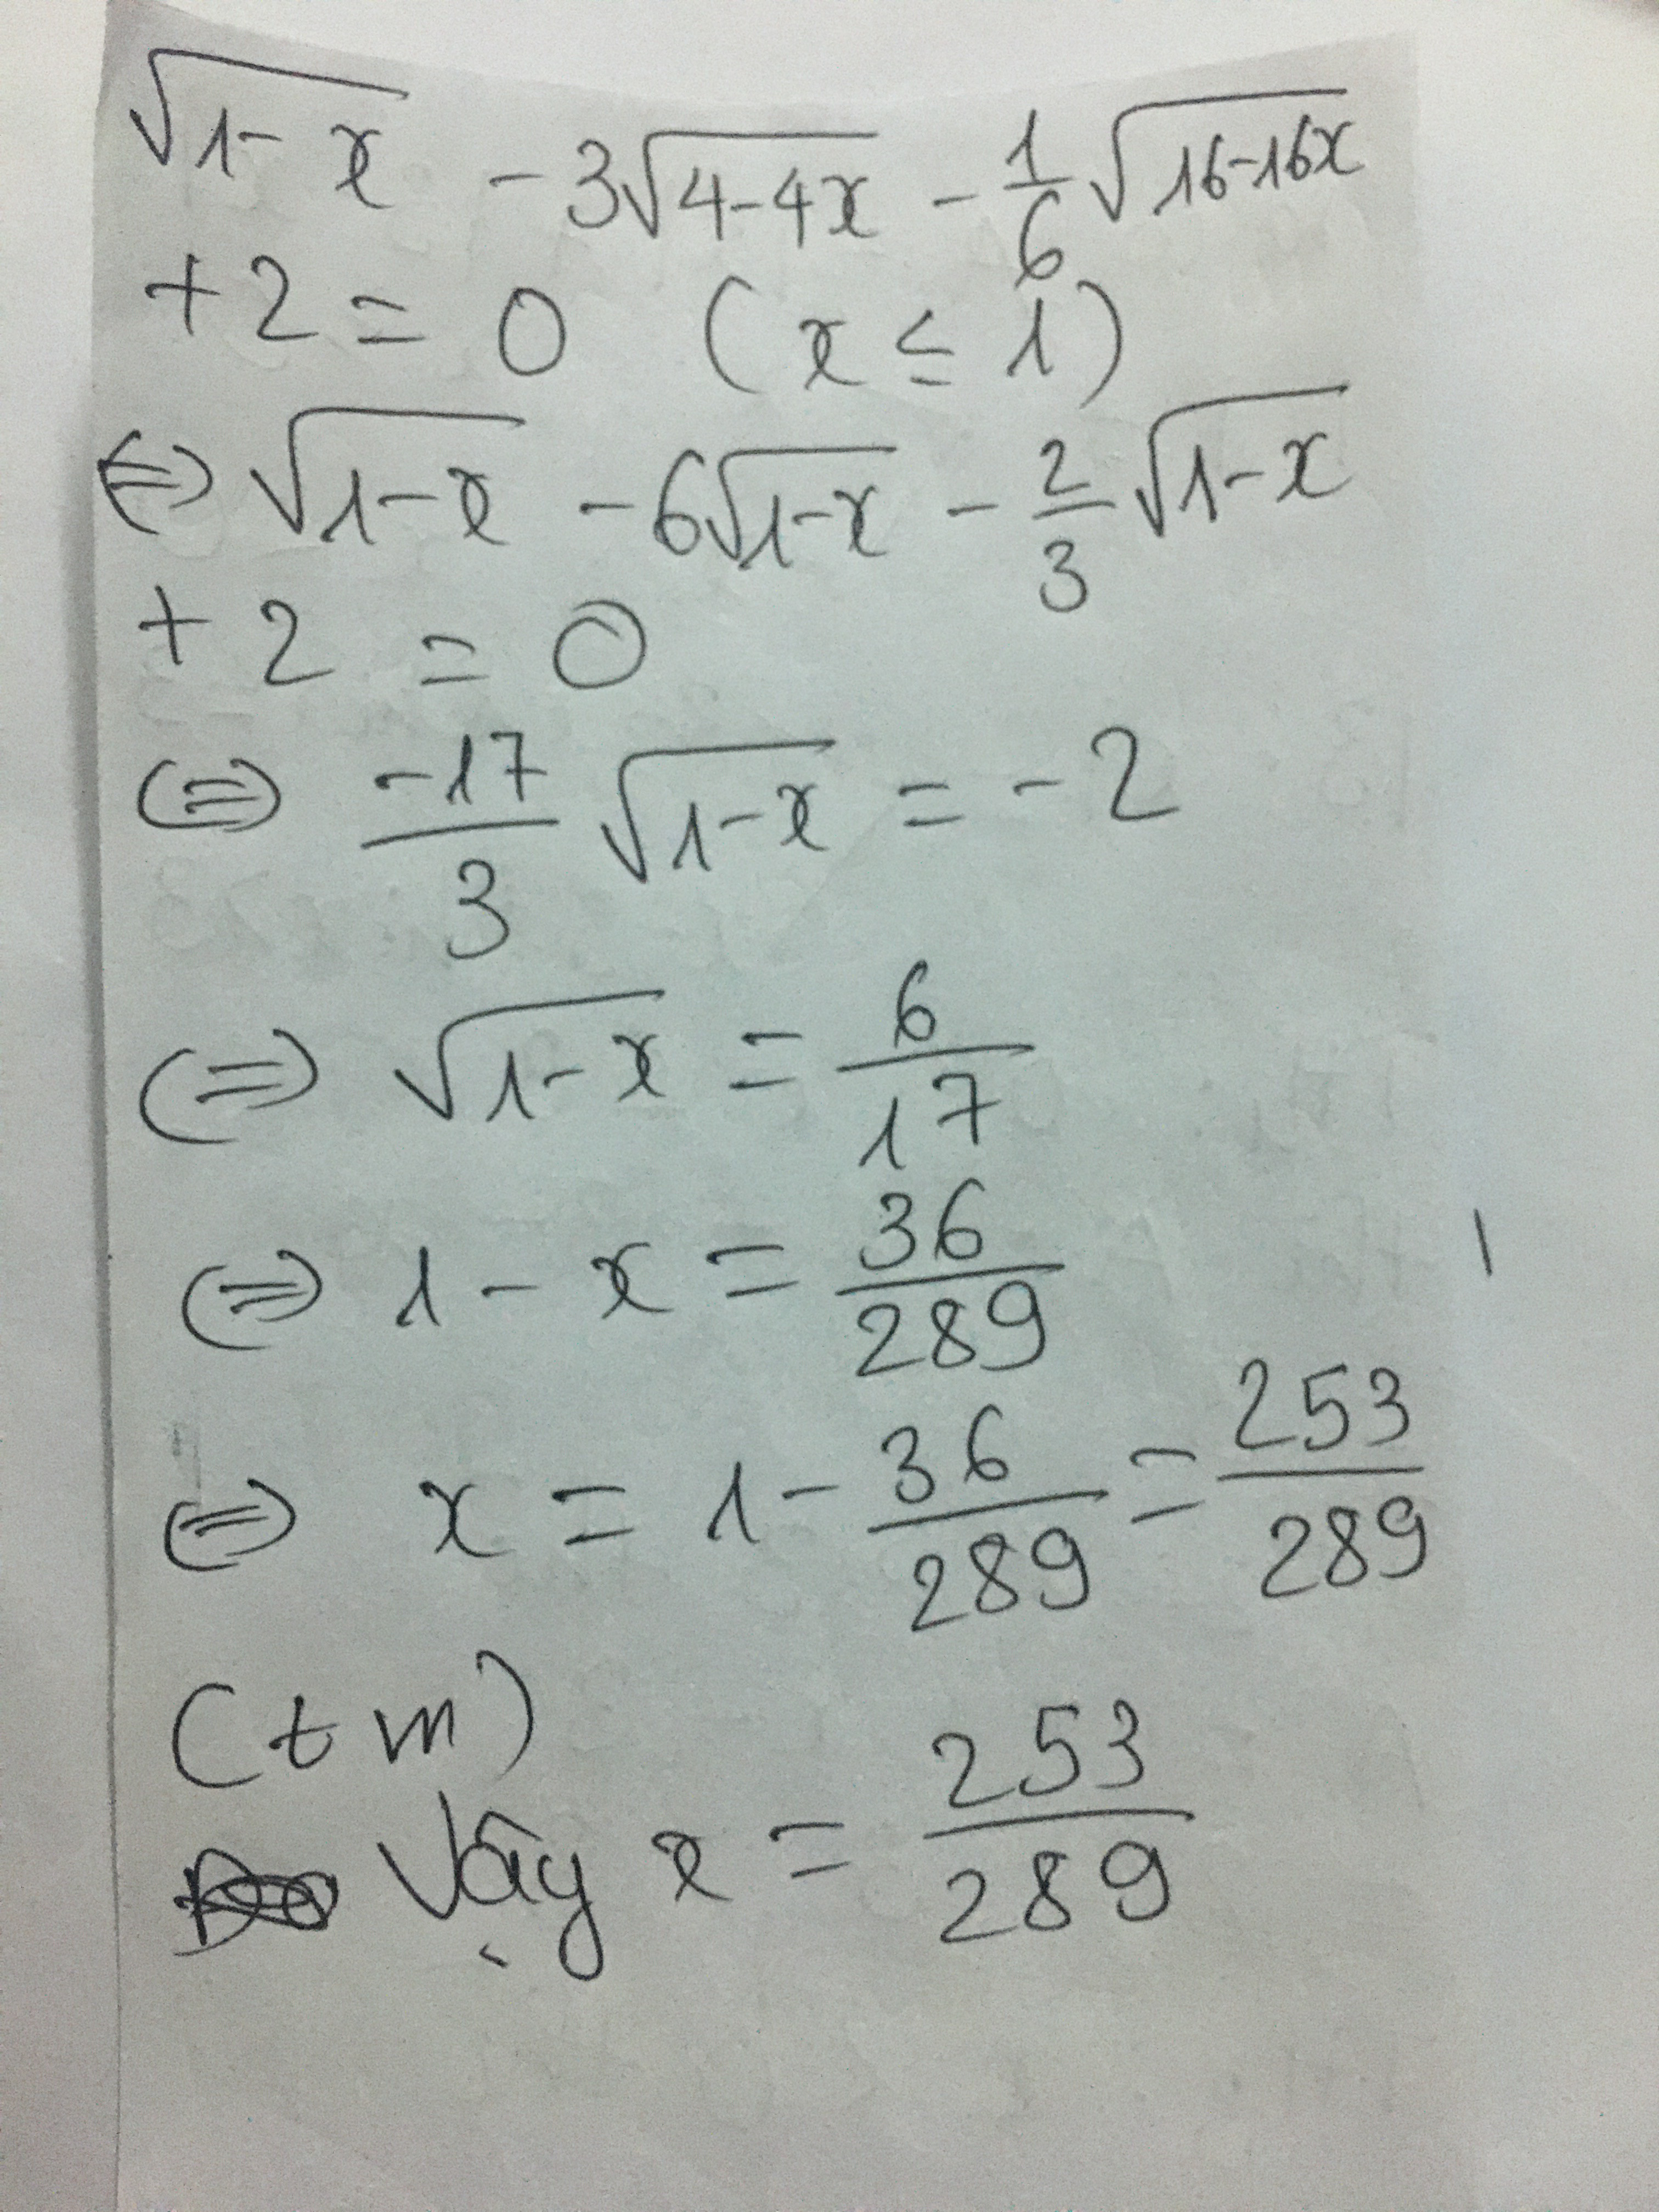 √(1-x) - 3√(4-4x) - 1/6 √(16-16x)
+ 2 = 0 (x ≤ 1)
⇔ √(1-x) - 6√(1-x) - 2/3 √(1-x)
+ 2 = 0
⇔ -17/3 √(1-x) = -2
⇔ √(1-x) = 6/17
⇔ 1 - x = 36/289
⇔ x = 1 - 36/289 = 253/289
(tm)
Vậy x = 253/289